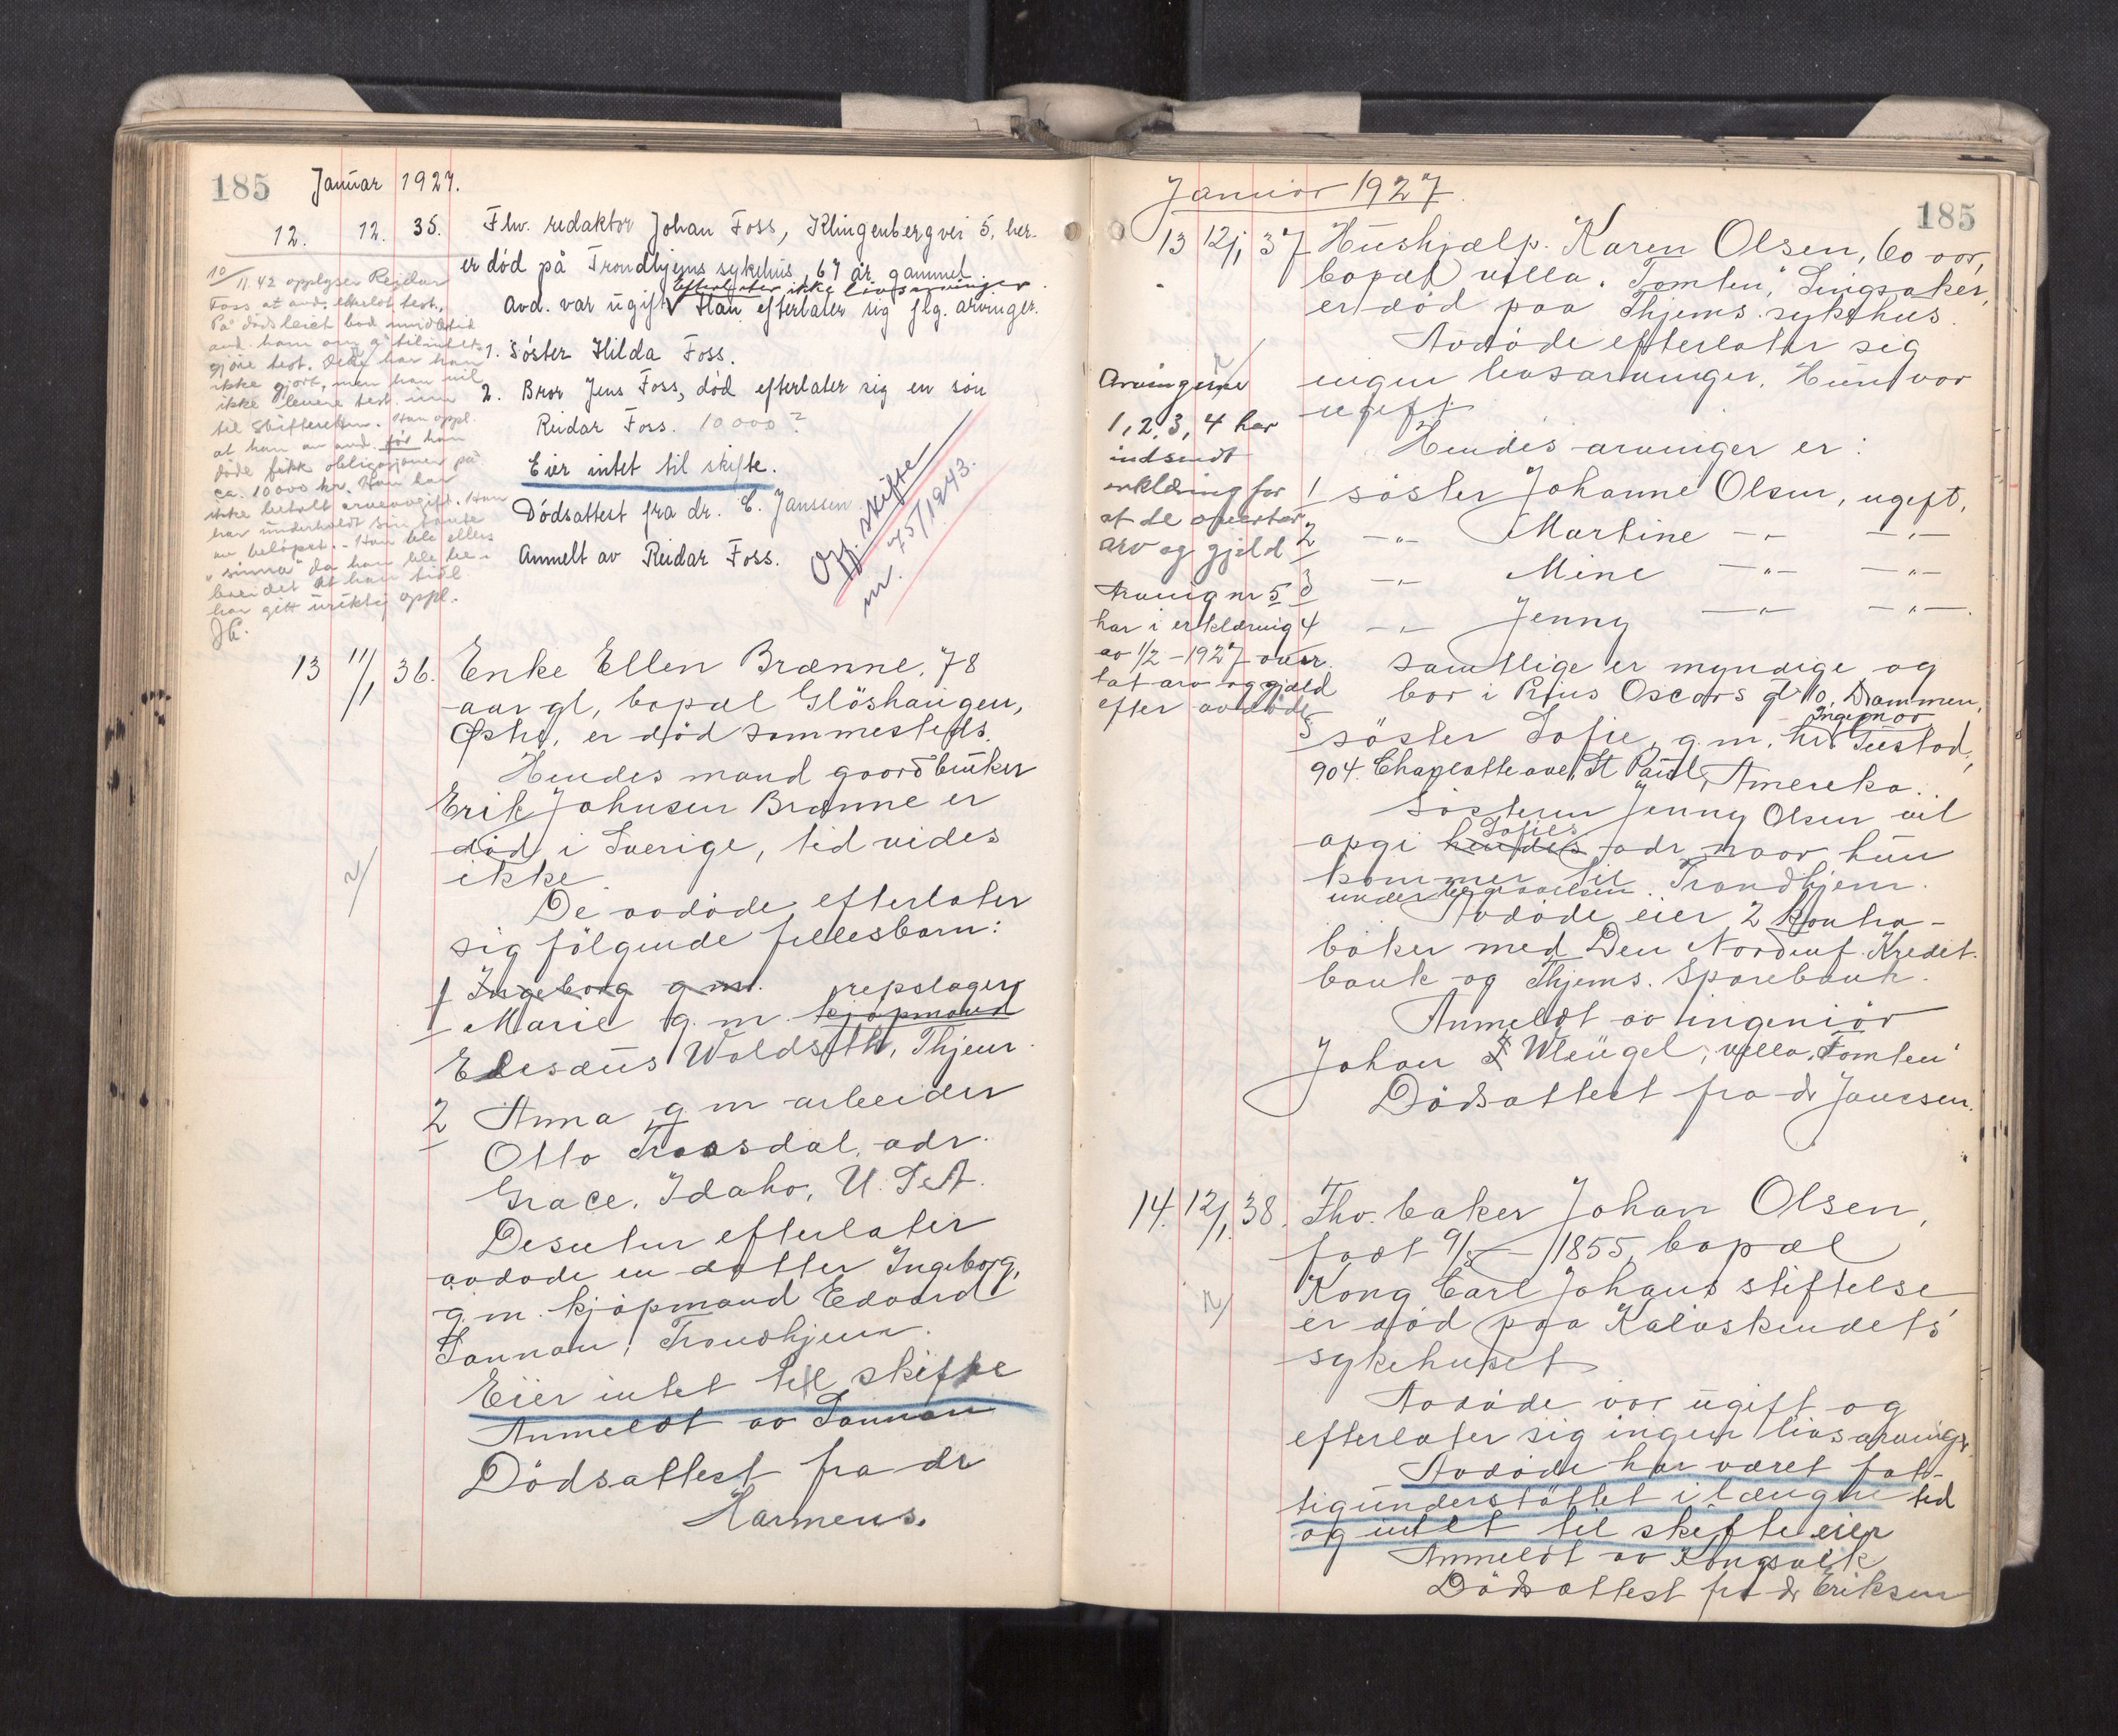 185 Januar 1927.
12. 12. 35. Fhv. redaktör Johan Foss, Klingenbergvei 5, her.
er död på Trondhjems sykehus, 67 år gammel.
Efterlater ikke livsarvinger.
Avd. var ugift. Han efterlater sig flg. arvinger.
1. Söster Hilda Foss.
2. Bror Jens Foss, död efterlater sig en sön
Reidar Foss. 10000?
Eier intet til skifte.
Dödsattest fra dr. C. Janssen
Anmelt av Reidar Foss.
Off. skifte
nr. 75/1943.
10/11.42 opplyser Reidar
Foss at avd. efterlot test.,
På dödsleiet bad imidlertid
avd. ham om å tilintet-
gjöre test. Dette har han
ikke gjort, men han vil
ikke levere test. inn
til skifteretten. Han oppl.
at han av avd. för han
döde fikk obligasjoner på
ca. 10000 kr. Han har
ikke betalt arveavgift. Han
har underholdt sin tante
av belöpet. - Han ble ellers
"sinna" da han ble be-
breidet at han tidl.
har gitt uriktig oppl.
13 11/1 36. Enke Ellen Brænne, 78
aar gl, bopæl Glöshaugen,
er död sammesteds.
Hendes mand gaardbruker
Erik Johnsen Brænne er
död i Sverige, tid vides
ikke.
De avdöde efterlater
sig fölgende fellesbarn:
1 Ingeborg g.m. repslager
1 Marie g.m. kjöpmand
Elesæus Waldseth, Thjem.
2 Anna g m arbeider
Otto Traasdal, adr.
Grace, Idaho, U.S.A.
Desuten efterlater
avdöde en datter Ingeborg,
g.m. kjöpmand Edvard
Sannan, Trondhjem.
Eier intet til skifte
Anmeldt av Sannan
Dödsattest fra dr
Harmens.
Januar 1927.
185
13 12/1 37 Hushjælp Karen Olsen, 60 aar,
bopæl villa "Tomten," Singsaker,
er död paa Thjems sykehus.
Avdöde efterlater sig
ingen livsarvinger. Hun var
ugift
Hendes arvinger er:
1 söster Johanne Olsen, ugift,
2 -"- Martine -"- -"-
3 -"- Mine -"- -"-
4 -"- Jenny -"- -"-.
samtlige er myndige og
bor i Prins Oscars gt 10, Drammen,
5 söster Sofie, g.m. Ingeniör
904. Charlotte ave, St Paul, Amerika.
Sösteren Jenny Olsen vil
opgi hendes Sofies adr naar hun
kommer til Trondhjem.
under begravelsen.
Avdöde eier 2 kontra-
böker med Den Nordenf. Kredit-
bank og Thjems. Sparebank.
Anmeldt av ingeniör
Johan S Wleügel, villa "Tomten"
Dödsattest fra dr Janssen.
Arvingerne
1, 2, 3, 4 har
indsendt
erklæring for
at de overtar
arv og gjeld
Arving nr 5
har i erklæring
av 1/2-1927 over-
tat arv og gjæld
efter avdöde
14. 12/1 38. Fhv. baker Johan Olsen,
födt 9/5-1855, bopæl
Kong Carl Johans stiftelse
er död paa Kalvskindets
sykehuset
Avdöde var ugift og
efterlater sig ingen livsarvinger
Avdöde har været fat-
tigunderstöttet i længere tid
og intet til skifte eier
Anmeldt av Kongsvik
Dödsattest fra dr Eriksen